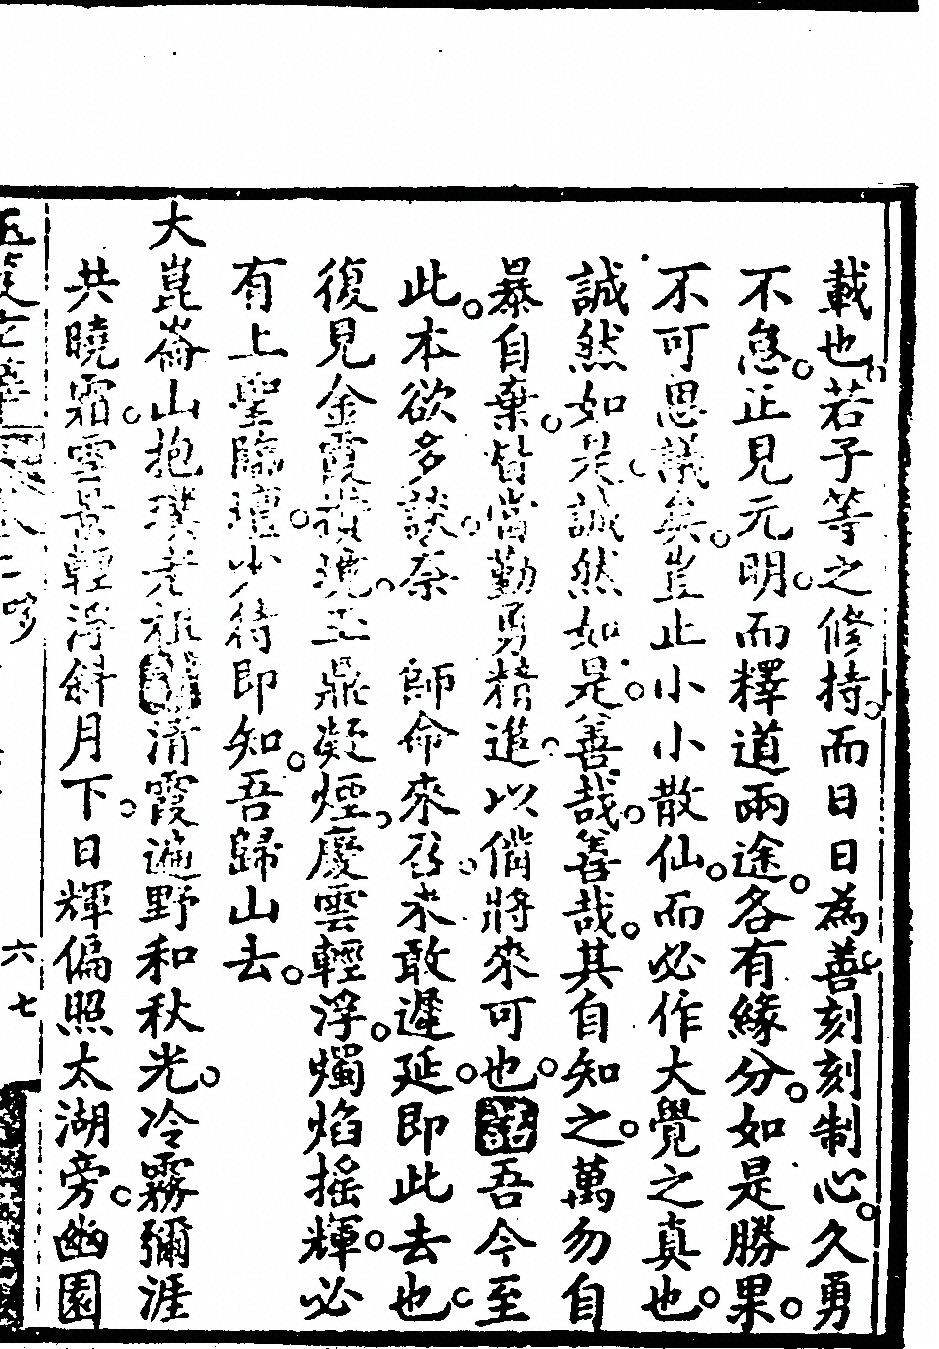 載也若子等之修持而日日為善刻刻制心久勇
不怠正見元明而釋道兩途各有緣分如是勝果
不可思議矣豈止小小散仙而必作大覺之真也
誠然如是誠然如是善哉善哉其自知之萬勿自
暴自棄皆當勤勇精進以備將來可也詔吾今至
此本欲多談奈 師命來召未敢遲延即此去也
復見金霞擁琬玉鼎凝煙慶雲輕浮燭焰搖輝必
有上聖臨壇少待即知吾歸山去
大崑崙山抱璞老祖清霞遍野和秋光冷霧彌涯
共曉霜雲景輕浮斜月下日輝偏照太湖旁幽園
六 七